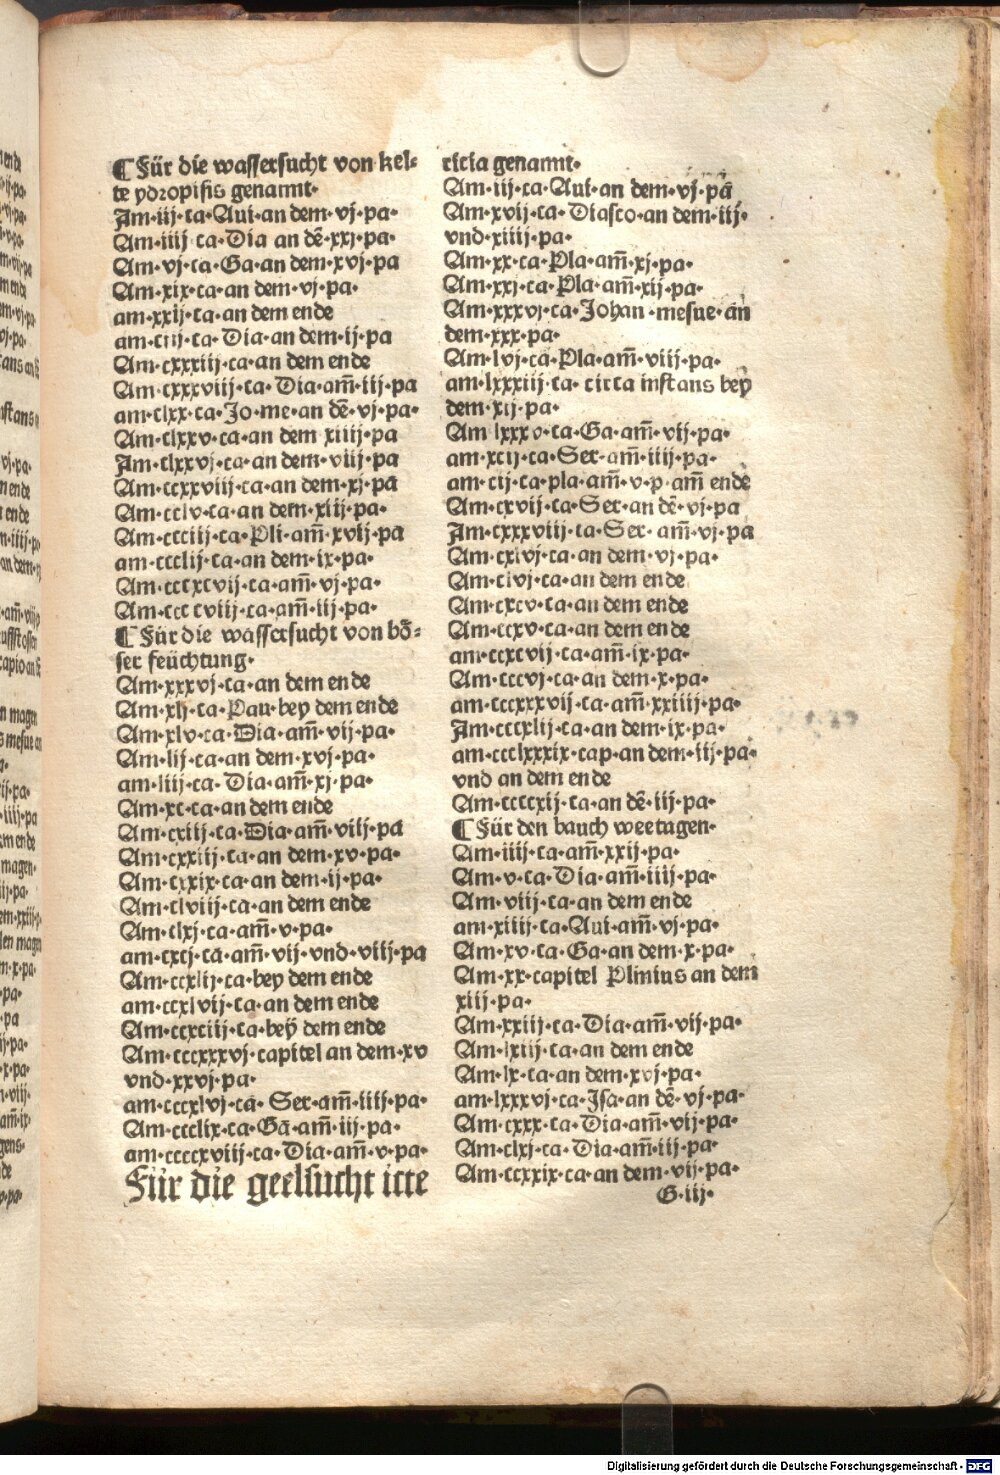 ¶ Für die wassersucht von kel⸗
te ydropisis genannt·
Am·iij·ca·Aui·an dem·vj·pa·
Am·iiij ca·Dia an dē·xxj·pa·
Am·vj·ca·Ga·an dem·xvj·pa
Am·xix·ca·an dem·vj·pa·
am·xxij·ca·an dem ende
am·ciij·ca·Dia·an dem·ij·pa
Am·cxxxiij·ca·an dem ende
Am·cxxxviij·ca·Dia·am̄·iij·pa
am·clxx·ca·Jo·me·an dē·vj·pa·
Am·clxxv·ca·an dem xiiij·pa
Am·clxxvj·ca·an dem·viij·pa
Am·ccxxviij·ca·an dem·xj·pa
Am·cclv·ca·an dem·xiij·pa·
Am·ccciij·ca·Pli·am̄·xvij·pa
am·ccclij·ca·an dem·ix·pa·
Am·cccxcvij·ca·am̄·vj·pa·
Am·ccc cviij·ca·am̄·iij·pa·
¶ Für die wassersucht von bö⸗
ser feüchtung·
Am·xxxvj·ca·an dem ende
Am·xlj·ca·Pau·bey dem ende
Am·xlv·ca·Dia·am̄·vij·pa·
Am·lij·ca·an dem·xvj·pa·
am·liij·ca·Dia·am̄·xj·pa·
Am·xc·ca·an dem ende
Am·cxiij·ca·Dia·am̄·viij·pa
Am·cxxiij·ca·an dem·xv·pa·
Am·cxxix·ca·an dem·ij·pa·
Am·clviij·ca·an dem ende
Am·clxj·ca·am̄·v·pa·
am·cxcj·ca·am̄·vij·vnd·viij·pa
Am·ccxlij·ca·bey dem ende
am·ccxlvij·ca·an dem ende
Am·ccxciij·ca·beÿ dem ende
Am·cccxxxvj·capitel an dem·xv
vnd·xxvj·pa·
am·cccxlvj·ca·Ser·am̄·iiij·pa·
Am·ccclix·ca·Ga·am̄·iij·pa·
am·ccccxviij·ca·Dia·am̄·v·pa·
Für die geelsucht icte
ricia genannt·
Am·iij·ca·Aui·an dem·vj·pa
Am·xvij·ca·Diasco·an dem·iij·
vnd·xiiij·pa·
Am·xx·ca·Pla·am̄·xj·pa·
Am·xxj·ca·Pla·am̄·xij·pa·
Am·xxxvj·ca·Johan·mesue·an
dem·xxx·pa·
Am·lvj·ca·Pla·am̄·viij·pa·
am·lxxxiij·ca·circa instans bey
dem·xij·pa·
Am lxxxv·ca·Ga·am̄·vij·pa·
am·xcij·ca·Ser·am̄·iiij·pa·
am·cij·ca·pla·am̄·v·p·am̄ ende
Am·cxvij·ca·Ser·an dē·vj·pa
Am·cxxxviij·ca·Ser·am̄·vj·pa
Am·cxlvj·ca·an dem·vj·pa·
Am·clvj·ca·an dem ende
Am·cxcv·ca·an dem ende
Am·ccxv·ca·an dem ende
am·ccxcvij·ca·am̄·ix·pa·
Am·cccvj·ca·an dem·x·pa·
am·cccxxxvij·ca·am̄·xxiiij·pa·
Am·cccxlij·ca·an dem·ix·pa·
am·ccclxxxix·cap·an dem·iij·pa·
vnd an dem ende
Am·ccccxij·ca·an dē·iij·pa·
¶ Für den bauch weetagen·
Am·iiij·ca·am̄·xxij·pa·
Am·v·ca·Dia·am̄·iiij·pa·
Am·viij·ca·an dem ende
am·xiiij·ca·Aui·am̄·vj·pa·
Am·xv·ca·Ga·an dem·x·pa·
Am·xx·capitel Plinius an dem
xiij·pa·
Am·xxiij·ca·Dia·am̄·vij·pa·
Am·lxiij·ca·an dem ende
Am·lx·ca·an dem·xvj·pa·
am·lxxxvj·ca·Isa·an dē·vj·pa·
Am·cxxx·ca·Dia·am̄·vij·pa·
Am·clxj·ca·Dia·am̄·iij·pa·
Am·ccxxix·ca·an dem·vij·pa·
G·iij·
Digitalisierung gefördert durch die Deutsche Forschungsgemeinschaft · DFG